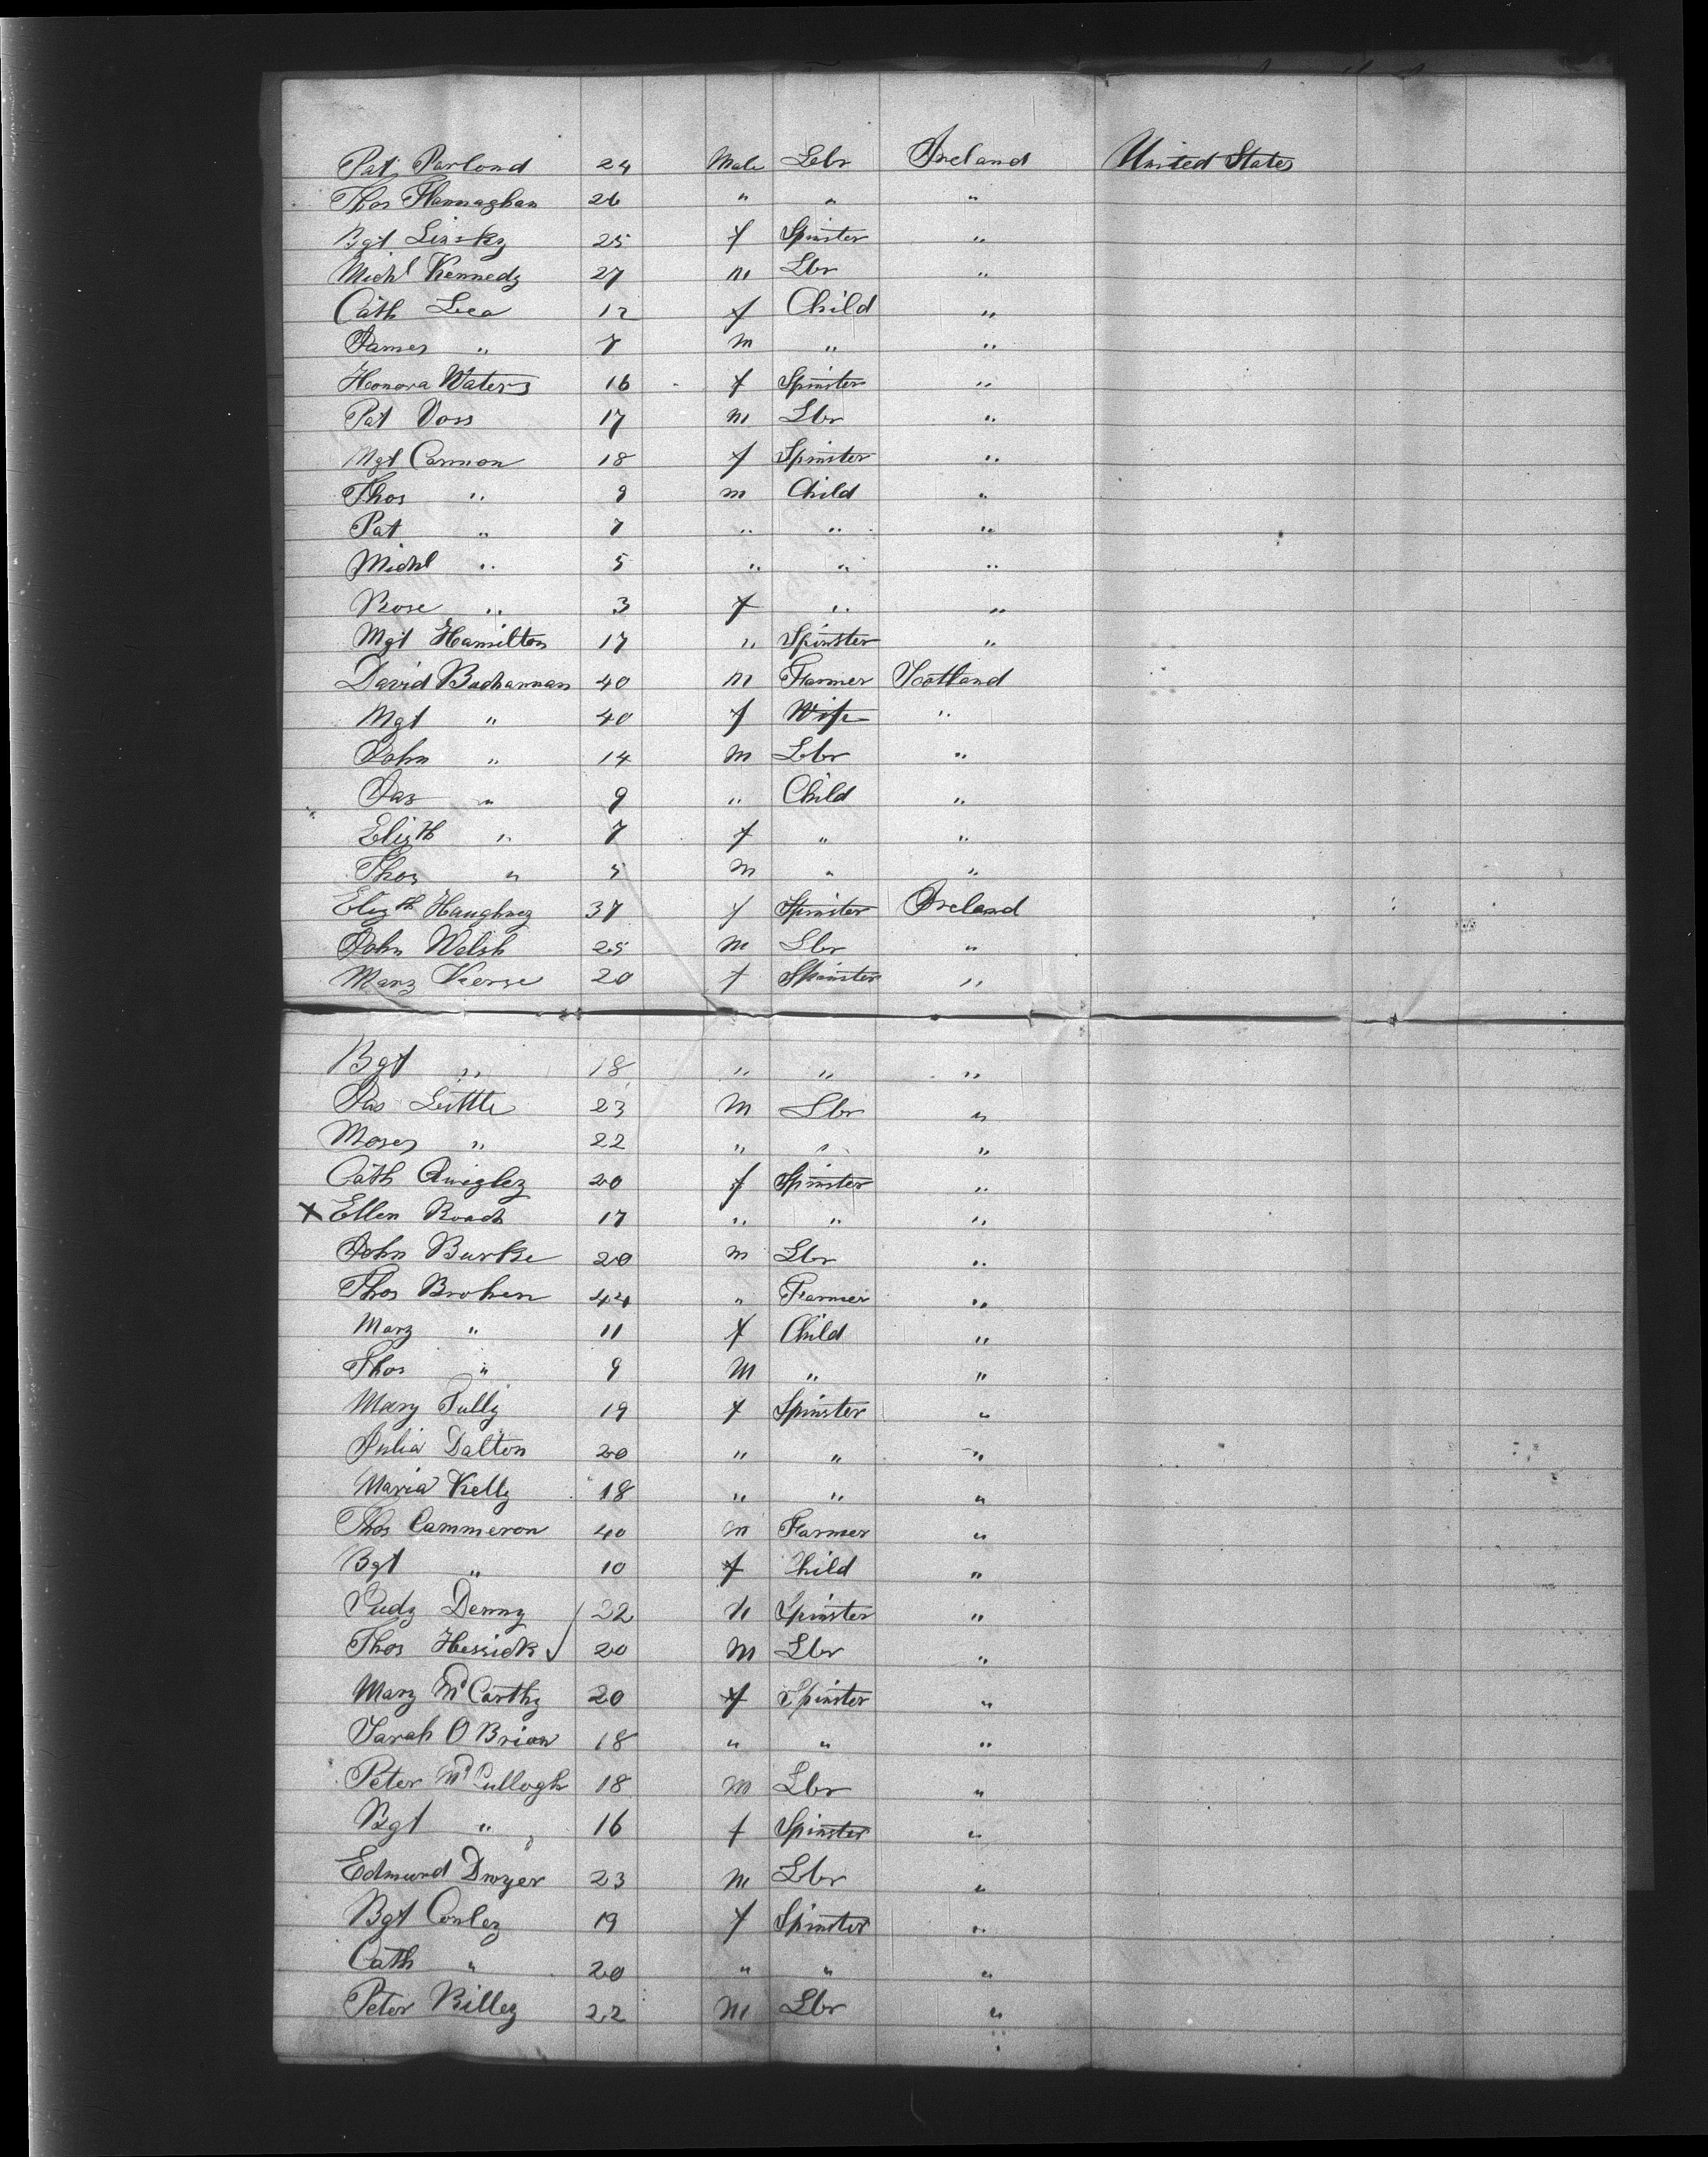 Pat Parlond 24 Male Lbr Ireland United States
Thos Flannaghan 26 " " "
Bgt Linsky 25 f Spinster "
Michl Kennedy 27 m Lbr "
Cath Lea 12 f Child "
James " 7 m " "
Honora Waters 16 f Spinster "
Pat Voss 17 m Lbr "
Mgt Cannon 18 f Spinster "
Thos " 9 m Child "
Pat " 7 " " "
Michl " 5 " " "
Rose " 3 f " "
Mgt Hamilton 17 " Spinster "
David Buchannan 40 m Farmer Scotland
Mgt " 40 f Wife "
John " 14 m Lbr "
Jas " 9 " Child "
Elizth " 7 f " "
Thos " 5 m " "
Elizth Haughney 37 f Spinster Ireland
John Welsh 25 m Lbr "
Mary Kerse 20 f Spinster "
Bgt " 18 " " "
Jas Little 23 m Lbr "
Moses " 22 " " "
Cath Quigley 20 f Spinster "
X Ellen Roach 17 " " "
John Burke 20 m Lbr "
Thos Broken 44 " Farmer "
Mary " 11 f Child "
Thos " 9 m " "
Mary Tully 19 f Spinster "
Julia Dalton 20 " " "
Maria Kelly 18 " " "
Thos Cammeron 40 m Farmer "
Bgt " 10 f Child "
Judy Denny 22 " Spinster "
Thos Hessick 20 m Lbr "
Mary McCarthy 20 f Spinster "
Sarah O Brian 18 " " "
Peter McCullogh 18 m Lbr "
Bgt " 16 f Spinster "
Edmund Dwyer 23 m Lbr "
Bgt Conley 19 f Spinster "
Cath " 20 " " "
Peter Billey 22 m Lbr "